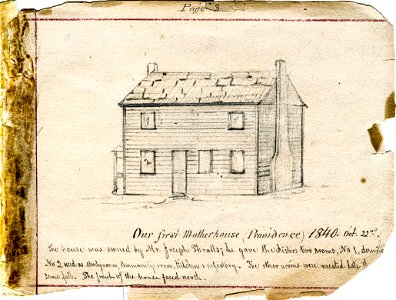 Page 3
Our first Motherhouse (Providence) 1840. Oct. 22nd.
The house was owned by Mr. Joseph Thralls; he gave the Sisters two rooms, No 1, dormitory
No 2 used as study room, Community room, Kitchen & refectory. The other rooms were
The front of the house faced north.